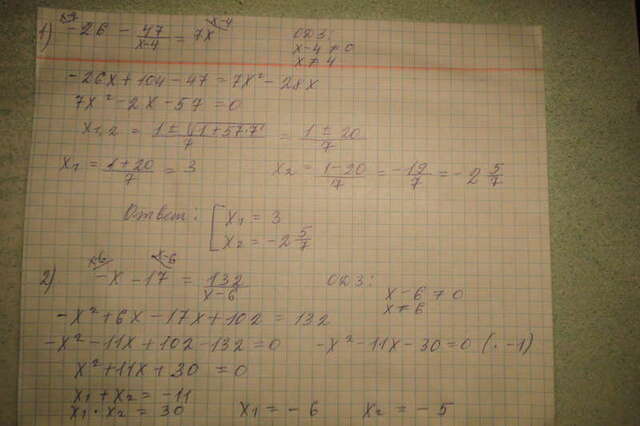 x-4 x-4
1) -26 - 47/(x-4) = 7x ОДЗ:
x-4 ≠ 0
x ≠ 4
-26x + 104 - 47 = 7x² - 28x
7x² - 2x - 57 = 0
x1,2 = (1 ± √(1+57·7))/7 = (1 ± 20)/7
x1 = (1+20)/7 = 3 x2 = (1-20)/7 = -19/7 = -2 5/7
Ответ: [ x1 = 3
x2 = -2 5/7
x-6 x-6
2) -x - 17 = 132/(x-6) ОДЗ:
x-6 ≠ 0
x ≠ 6
-x² + 6x - 17x + 102 = 132
-x² - 11x + 102 - 132 = 0 -x² - 11x - 30 = 0 (· -1)
x² + 11x + 30 = 0
x1 + x2 = -11
x1 · x2 = 30 x1 = -6 x2 = -5